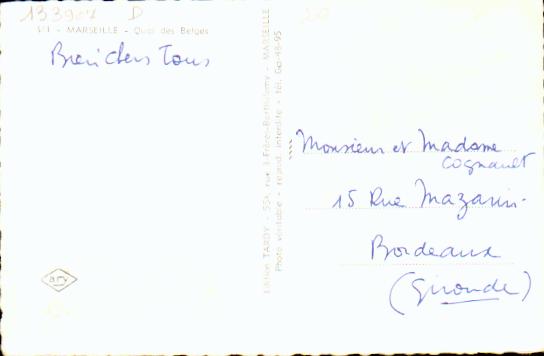 133907 D
20
511 - MARSEILLE - Quai des Belges
Bien chers Tous
Edition TARDY - 55A, rue J.-Frère-Berthelemy - MARSEILLE
Photo véritable - reprod. interdite - tél. Ga 48-95
Monsieur et Madame
Cognault
15 Rue Mazarin-
Bordeaux
(Gironde)
ary